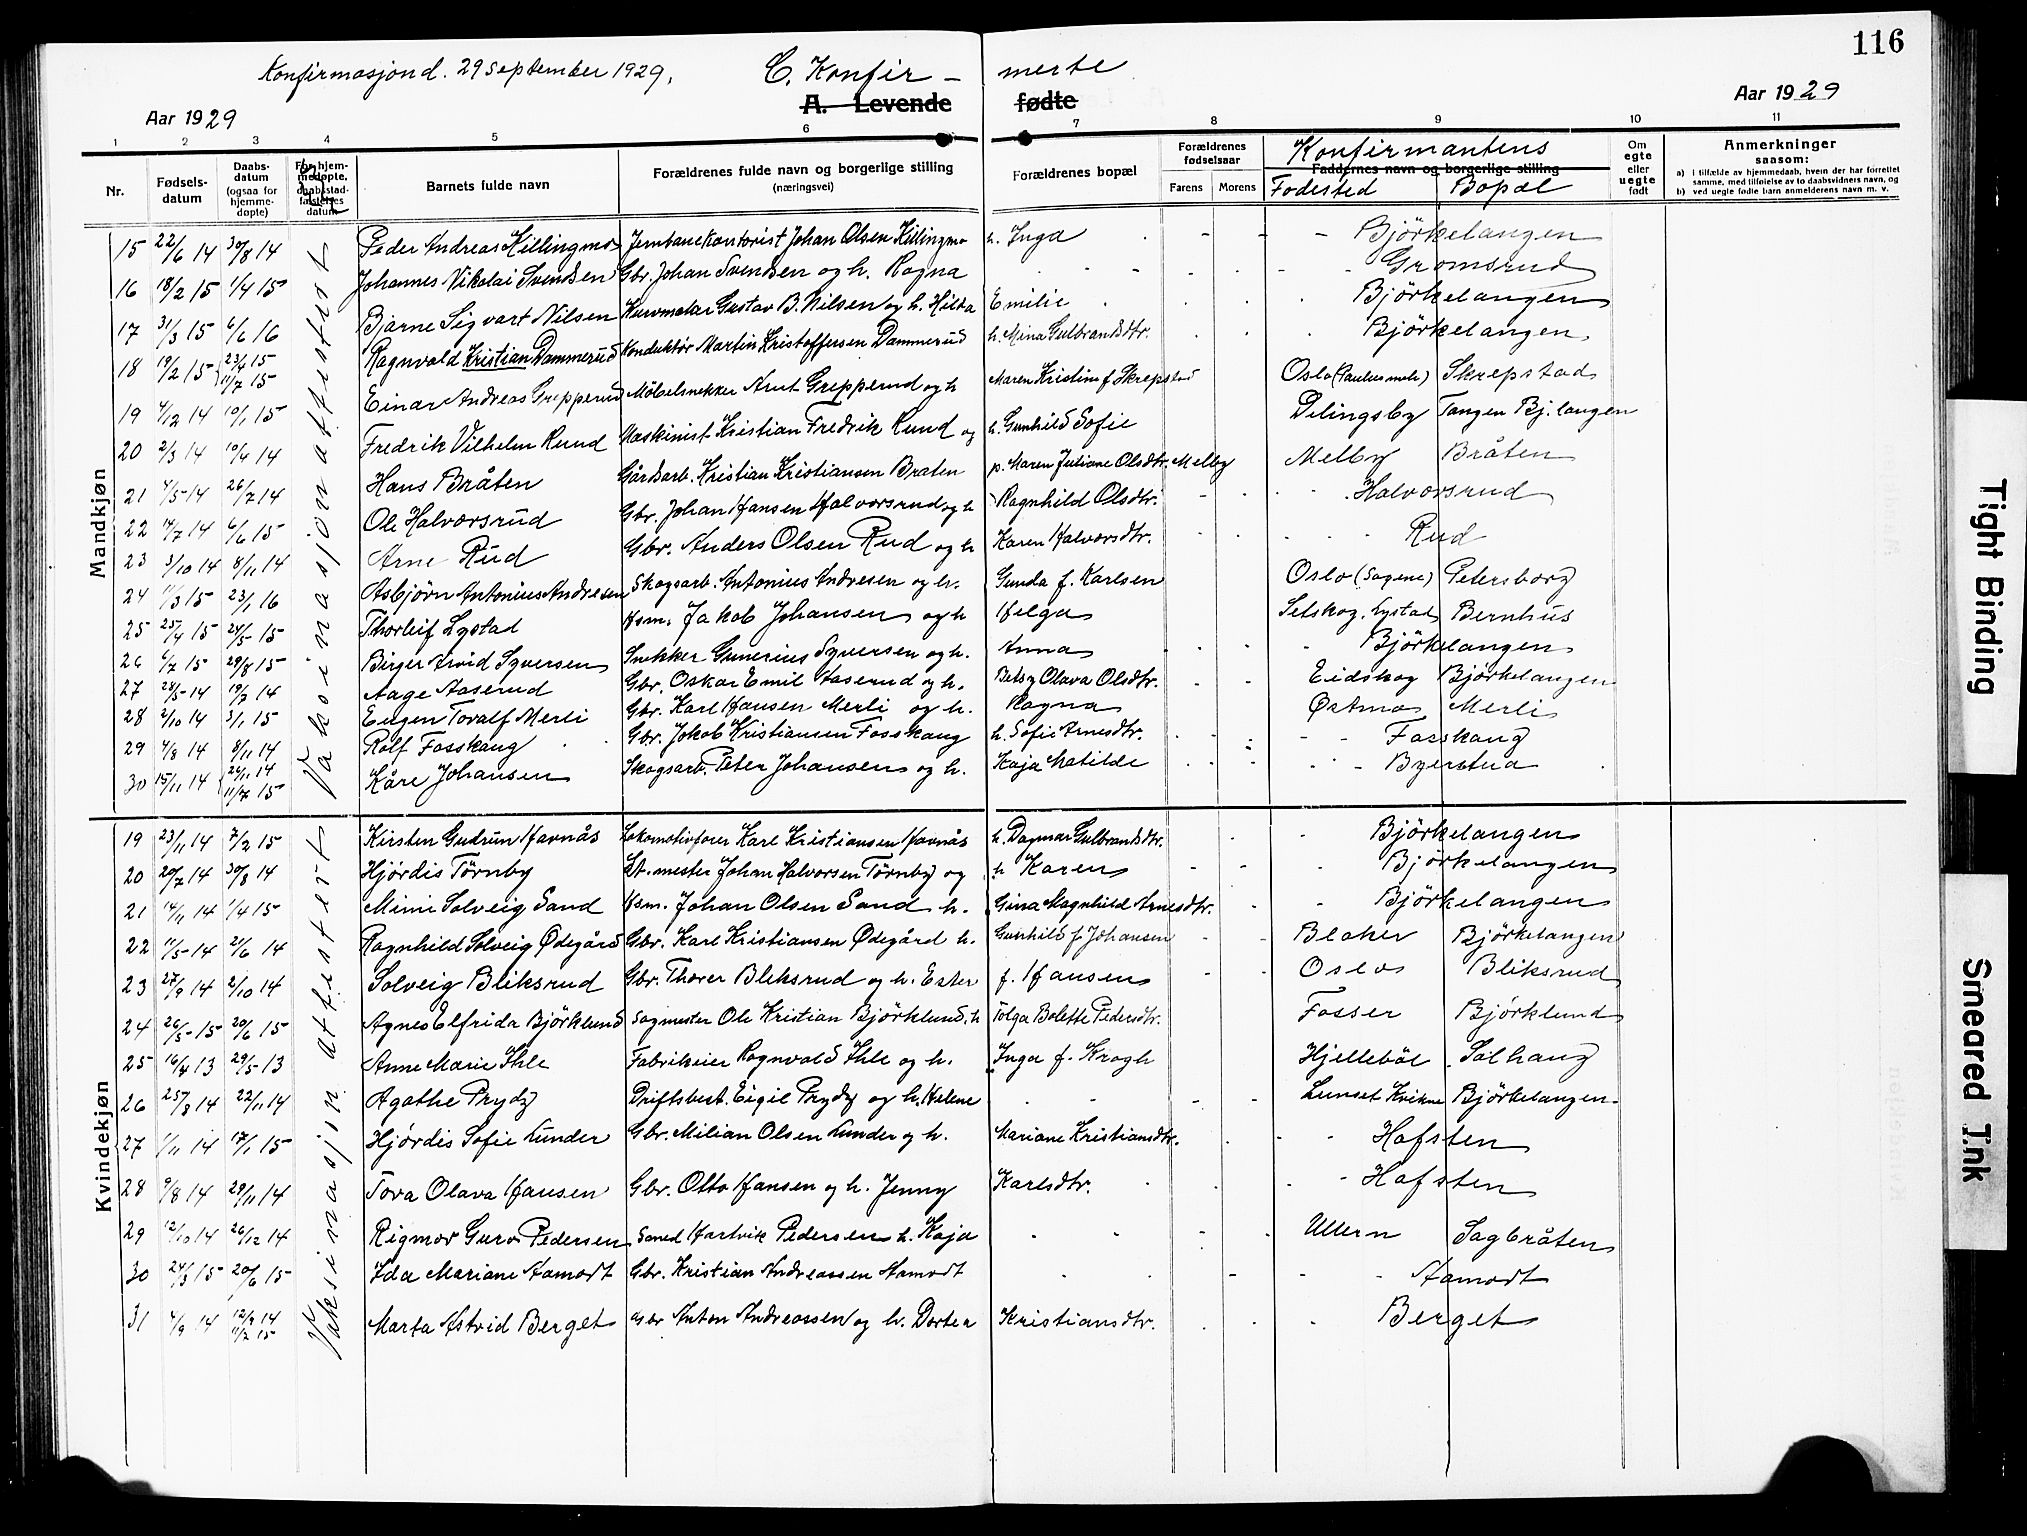 116
Konfirmasjon d. 29 september 1929.
C. Konfir - merte
A. Levende fødte
Aar 1929
Aar 1929
1 2 3 4 5 6 7 8 9 10 11
Nr. Fødsels-datum Daabs-datum (ogsaa for hjemme-døpte) For hjem-medøpte, daabsstad-fæstelses datum Barnets fulde navn Forældrenes fulde navn og borgerlige stilling (næringsvei) Forældrenes bopæl Forældrenes fødselsaar Farens Morens Faddernes navn og borgerlige stilling Om egte eller uegte født Anmerkninger saasom:
a) i tilfælde av hjemmedaab, hvem der har forrettet samme, med tilføielse av to daabsvidners navn, og
b) ved uegte fødte barn anmelderens navn m. v.
Konfirmantens
Fødested Bopæl
Mandkjøn
Vaksinasjon attestert
15 22/6 14 30/8 14 Peder Andreas Killingmo Jernbanekontorist Johan Olsen Killingmo h. Inga - - - Björkelangen
16 18/2 15 1/4 15 Johannes Nikolai Svendsen Gbr. Johan Svendsen og h. Ragna - - Gromsrud
17 31/3 15 6/6 16 Bjarne Sigvart Nilsen Kurvmaker Gustav B. Nilsen og h. Hilda Emilie Björkelangen
18 19/2 15 {23/4 15 11/7 15 Ragnvald Kristian Dammerud Konduktör Martin Kristoffersen Dammerud h. Mina Gulbrandsdtr. Björkelangen
19 4/12 14 10/1 15 Einar Andreas Grepperud Möbelsnekker Arnt Grepperud og h Maren Kristine f. Skrepstad Oslo (Paulus men.) Skrepstad
20 2/3 14 10/4 14 Fredrik Vilhelm Rund Maskinist Kristian Fredrik Rund og h. Gunhild Sofie Dilingsby Tangen Bj.langen
21 4/5 14 26/7 14 Hans Bråten Gårdsarb. Kristian Kristiansen Braten p. Maren Juliane Olsdtr. Melby Melby Bråten
22 14/7 14 6/6 15 Ole Halvorsrud Gbr. Johan Hansen Halvorsrud og h Ragnhild Olsdtr. - Halvorsrud
23 3/10 14 8/11 14 Arne Rud Gbr. Anders Olsen Rud og h Karen Halvorsdtr. - Rud
24 11/3 15 23/1 16 Asbjörn Antonius Andresen Skogsarb. Antonius Andresen og h. Gunda f. Karlsen Oslo (Sagene) Petersborg
25 25/4 15 24/5 15 Thorleif Lystad Hsm. Jakob Johansen og h Helga Setskog. Lystad Bernhus
26 6/7 15 29/8 15 Birger Arvid Syversen Snekker Gunerius Syversen og h. Anna Björkelangen
27 24/5 14 19/7 14 Aage Aaserud Gbr. Oskar Emil Aaserud og h. Betsy Olava Olsdtr. Eidskog Björkelangen
28 2/10 14 3/1 15 Eugen Toralf Merli Gbr. Karl Hansen Merli og h. Ragna Østmo Merli
29 4/8 14 8/11 14 Rolf Fosskaug Gbr. Jakob Kristiansen Fosskaug h. Sofie Arnesdtr. Fosskaug
30 15/11 14 {26/11 14 11/7 15 Kåre Johansen Skogsarb. Peter Johansen og h. Kaja Matilde Byerstua
Kvindekjøn
Vaksinasjon attestert
19 23/11 14 7/2 15 Kirsten Gudrun Havnås Lokomotivfører Karl Kristiansen Havnås h. Dagmar Gulbrandsdtr. Björkelangen
20 20/7 14 30/8 14 Hjördis Törnby St.mester Johan Halvorsen Törnby og h Karen Björkelangen
21 14/11 14 1/4 15 Mimi Solveig Sand Hsm. Johan Olsen Sand h. Gina Magnhild Arnesdtr. Björkelangen
22 11/5 14 21/6 14 Ragnhild Solveig Ødegård Gbr. Karl Kristiansen Ødegård h. Gunhild f Johansen Blaker Björkelangen
23 27/9 14 2/10 14 Solveig Bliksrud Gbr. Thorer Bleksrud og h. Ester f. Hansen Oslo Bliksrud
24 26/5 15 20/6 15 Agnes Elfrida Björklund Sagmester Ole Kristian Björklund. h Tolga Bolette Pedersdtr. Fosser Björklund
25 16/4 13 29/5 13 Anne Marie Ihle Fabrikeier Ragnvald Ihle og h. Inga f. Krogh Hjellebøl Solhaug
26 25/8 14 22/11 14 Agathe Prydz Driftsbest. Eigil Prydz og h. Helene Lunset Kvikne Björkelangen
27 1/11 14 17/1 15 Hjördis Sofie Lunder Gbr. Milian Olsen Lunder og h. Mariane Kristiansdtr. Hofsten
28 9/8 14 29/11 14 Tova Olava Hansen Gbr. Otto Hansen og h. Jenny Karlsdtr. Hofsten
29 12/10 14 26/12 14 Rigmor Guro Pedersen Smed Hartvik Pedersen h. Kaja Ullern Sagbråten
30 24/3 15 20/6 15 Ida Mariane Aamodt Gbr. Kristian Andreassen Aamodt Aamodt
31 4/9 14 12/9 14 11/7 15 Marta Astrid Berget Gbr Anton Andreassen og h. Dortea Kristiansdtr. Berget
Tight Binding
Smeared Ink